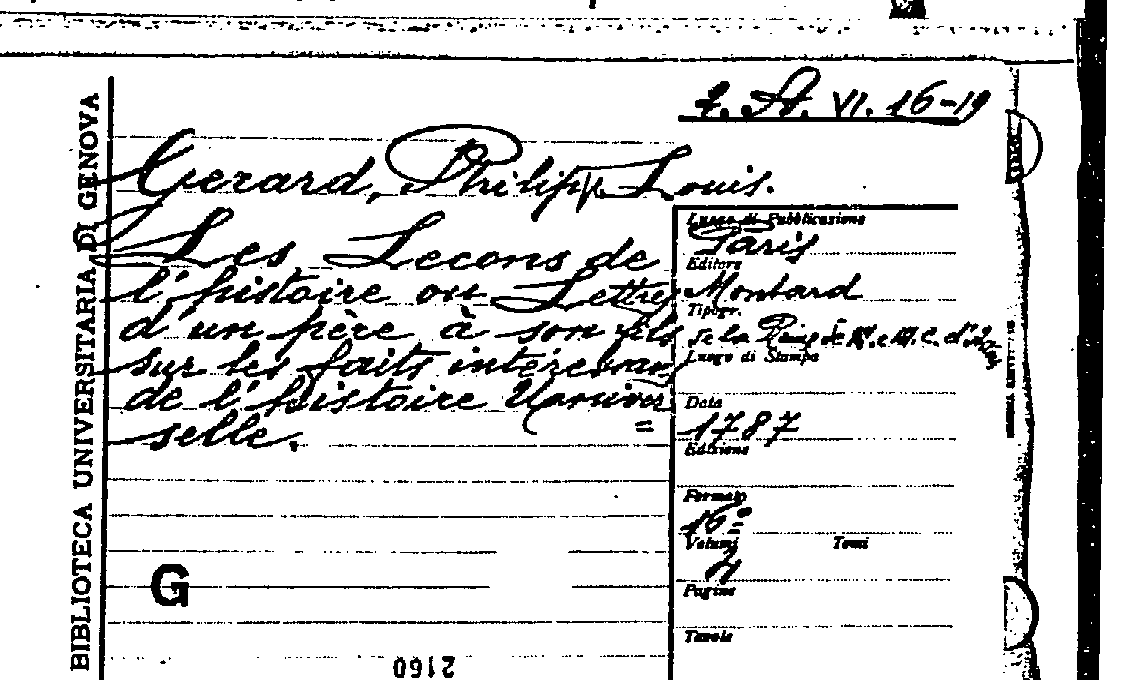 2. St. VI. 16-19
BIBLIOTECA UNIVERSITARIA DI GENOVA
Gerard, Philipp. Louis.
Les Lecons de
l'histoire ou Lettres
d'un père à son fils
sur les faits intéressans
de l'histoire Univer=
selle.
Luogo di Pubblicazione
Paris
Editore
Montard
Tipogr.
de la Reine de M. e M. C. d'
Luogo di Stampa
Data
1787
Edizione
Formato
16°
Volumi Tomi
4
Pagine
Tavole
G
2160